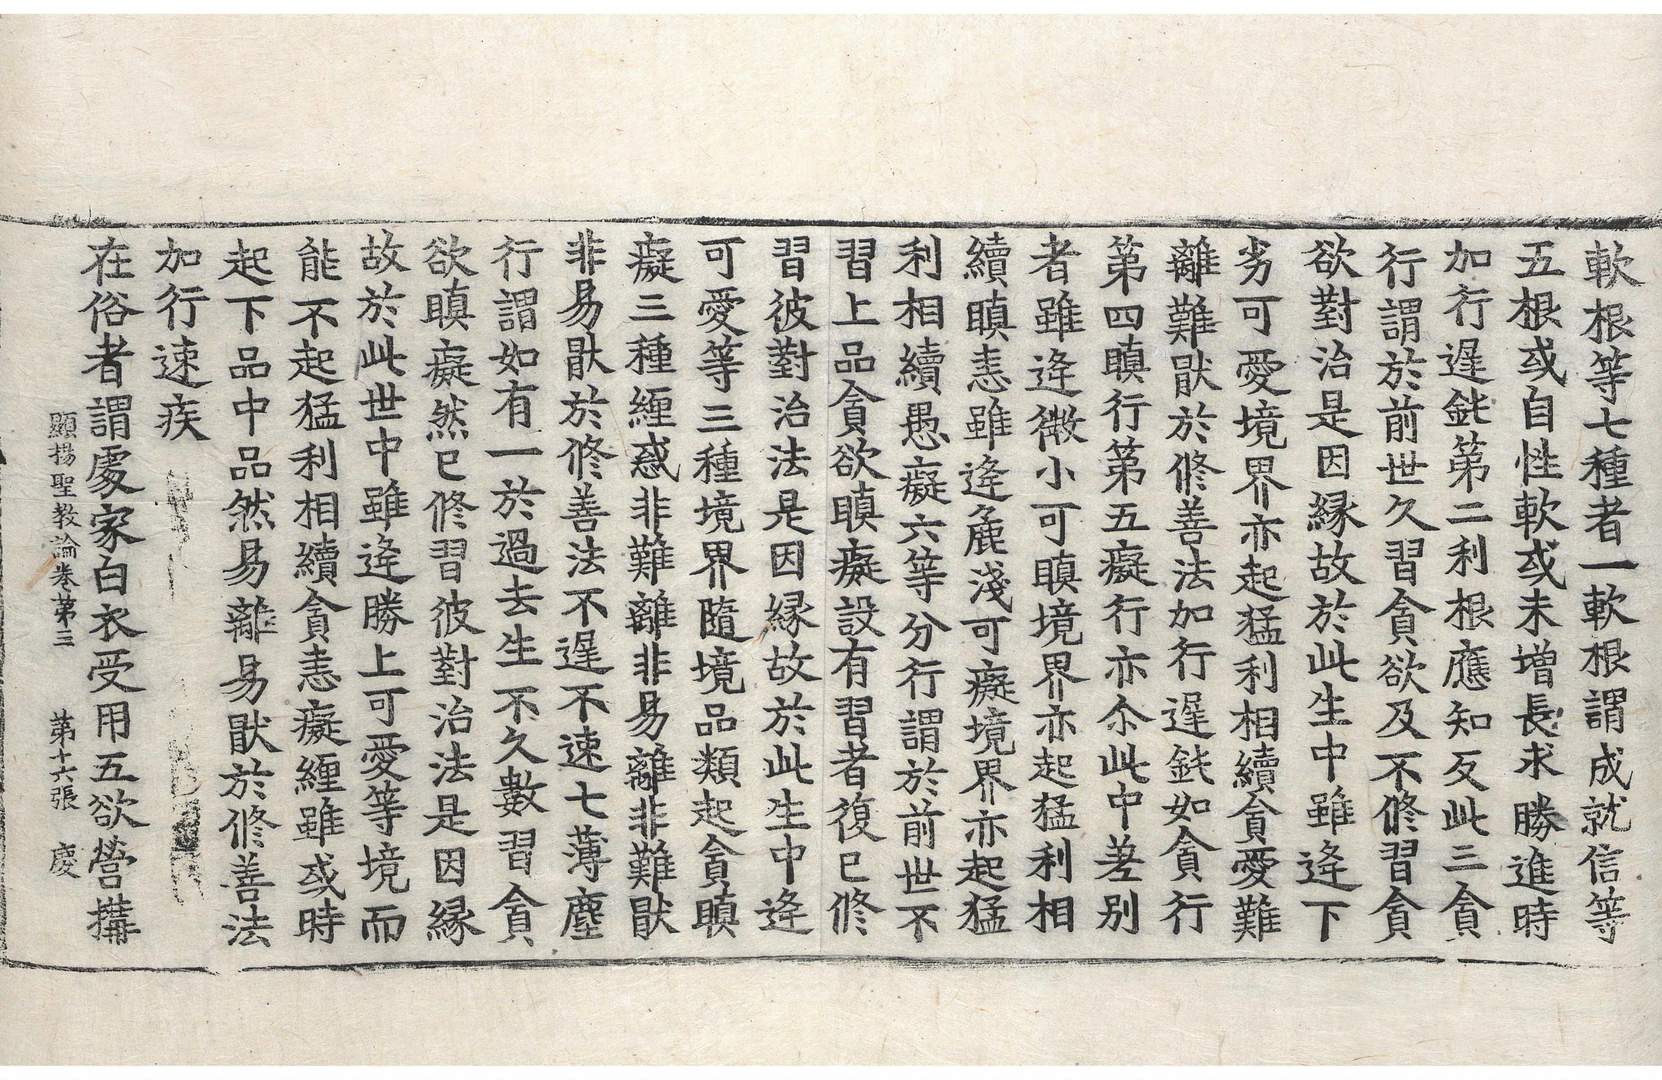 軟根等七種者一軟根謂成就信等
五根或自性軟或未增長求勝進時
加行遲鈍第二利根應知反此三貪
行謂於前世久習貪欲及不修習貪
欲對治是因緣故於此生中雖逢下
劣可愛境界亦起猛利相續貪愛難
離難猒於修善法加行遲鈍如貪行
第四瞋行第五癡行亦尒此中差別
者雖逢微小可瞋境界亦起猛利相
續瞋恚雖逢麁淺可癡境界亦起猛
利相續愚癡六等分行謂於前世不
習上品貪欲瞋癡設有習者復已修
習彼對治法是因緣故於此生中逢
可愛等三種境界隨境品類起貪瞋
癡三種纏惑非難離非易離非難猒
非易猒於修善法不遲不速七薄塵
行謂如有一於過去生不久數習貪
欲瞋癡然已修習彼對治法是因緣
故於此世中雖逢勝上可愛等境而
能不起猛利相續貪恚癡纏雖或時
起下品中品然易離易猒於修善法
加行速疾
在俗者謂處家白衣受用五欲營搆
顯揚聖教論卷第三　第十六張　慶